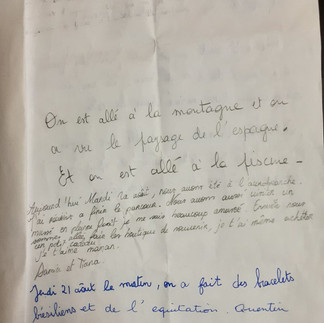 On est allé à la montagne et on
a vu le paysage de l'espagne.
Et on est allé à la piscine -
Aujourd'hui Mardi 22 août, nous avons été à l'accrobranche.
J'ai réussi à finir le parcours. Nous avons aussi
mangé en pleine forêt je me suis beaucoup amusé. Ensuite nous
sommes allés faire les boutiques de souvenir, je t'ai même acheter
un petit cadeau.
Je t'aime maman.
et Tiana.
Jeudi 21 août le matin, on a fait des bracelets
brésiliens et de l'equitation. Quentin